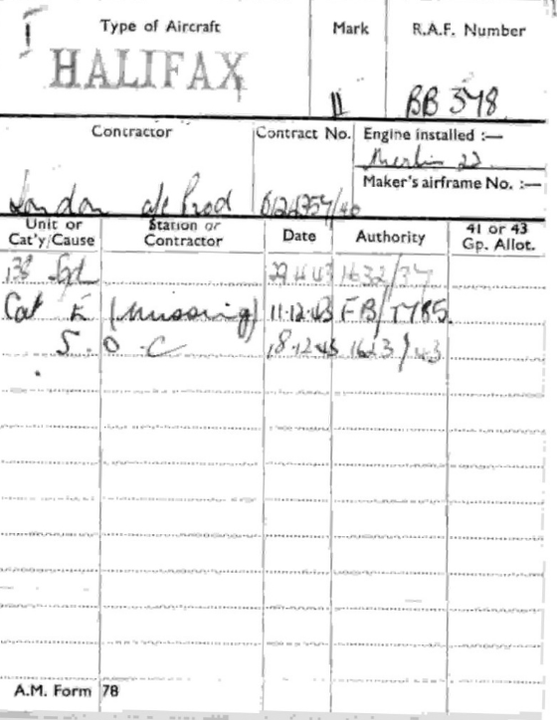 Type of Aircraft Mark R.A.F. Number
HALIFAX II BB 378
Contractor Contract No. Engine installed :—
Merlin 22
Maker's airframe No. :—
London a/c Prod
Unit or Cat'y/Cause Station or Contractor Date Authority 41 or 43 Gp. Allot.
138 Sqd 29.4.43 1632/37
Cat E (missing) 11.12.43 FB/T785
S.O.C 18.12.43 1623/43
A.M. Form 78